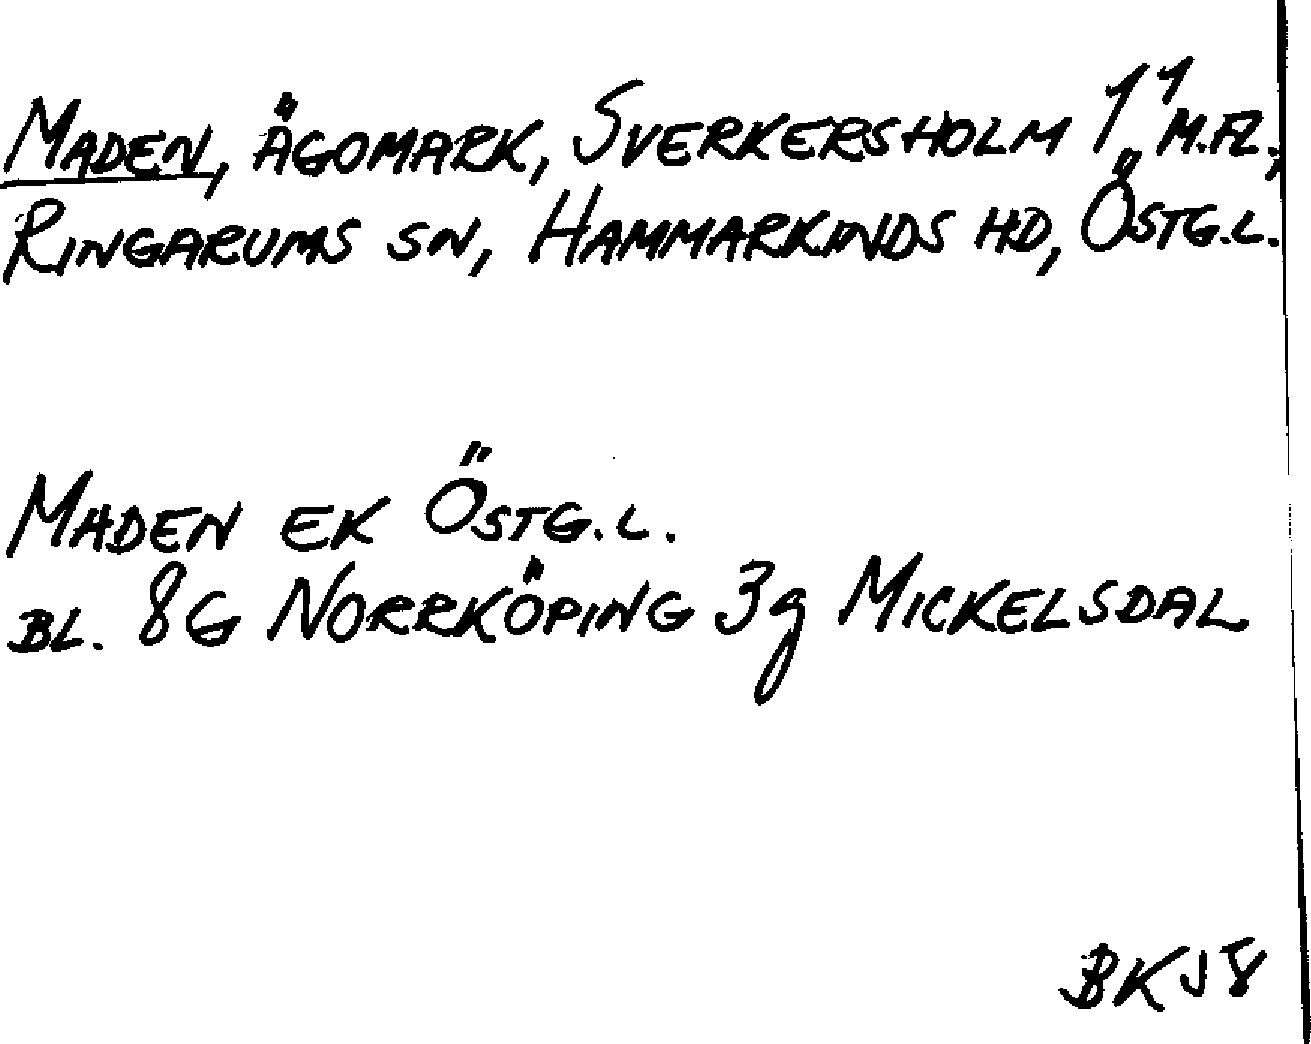 MADEN, ÄGOMARK, SVERKERSHOLM 1¹ M.FL.,
RINGARUMS SN, HAMMARKINDS HD, ÖSTG.L.
MADEN EK ÖSTG.L.
BL. 8G NORRKÖPING 3g MICKELSDAL